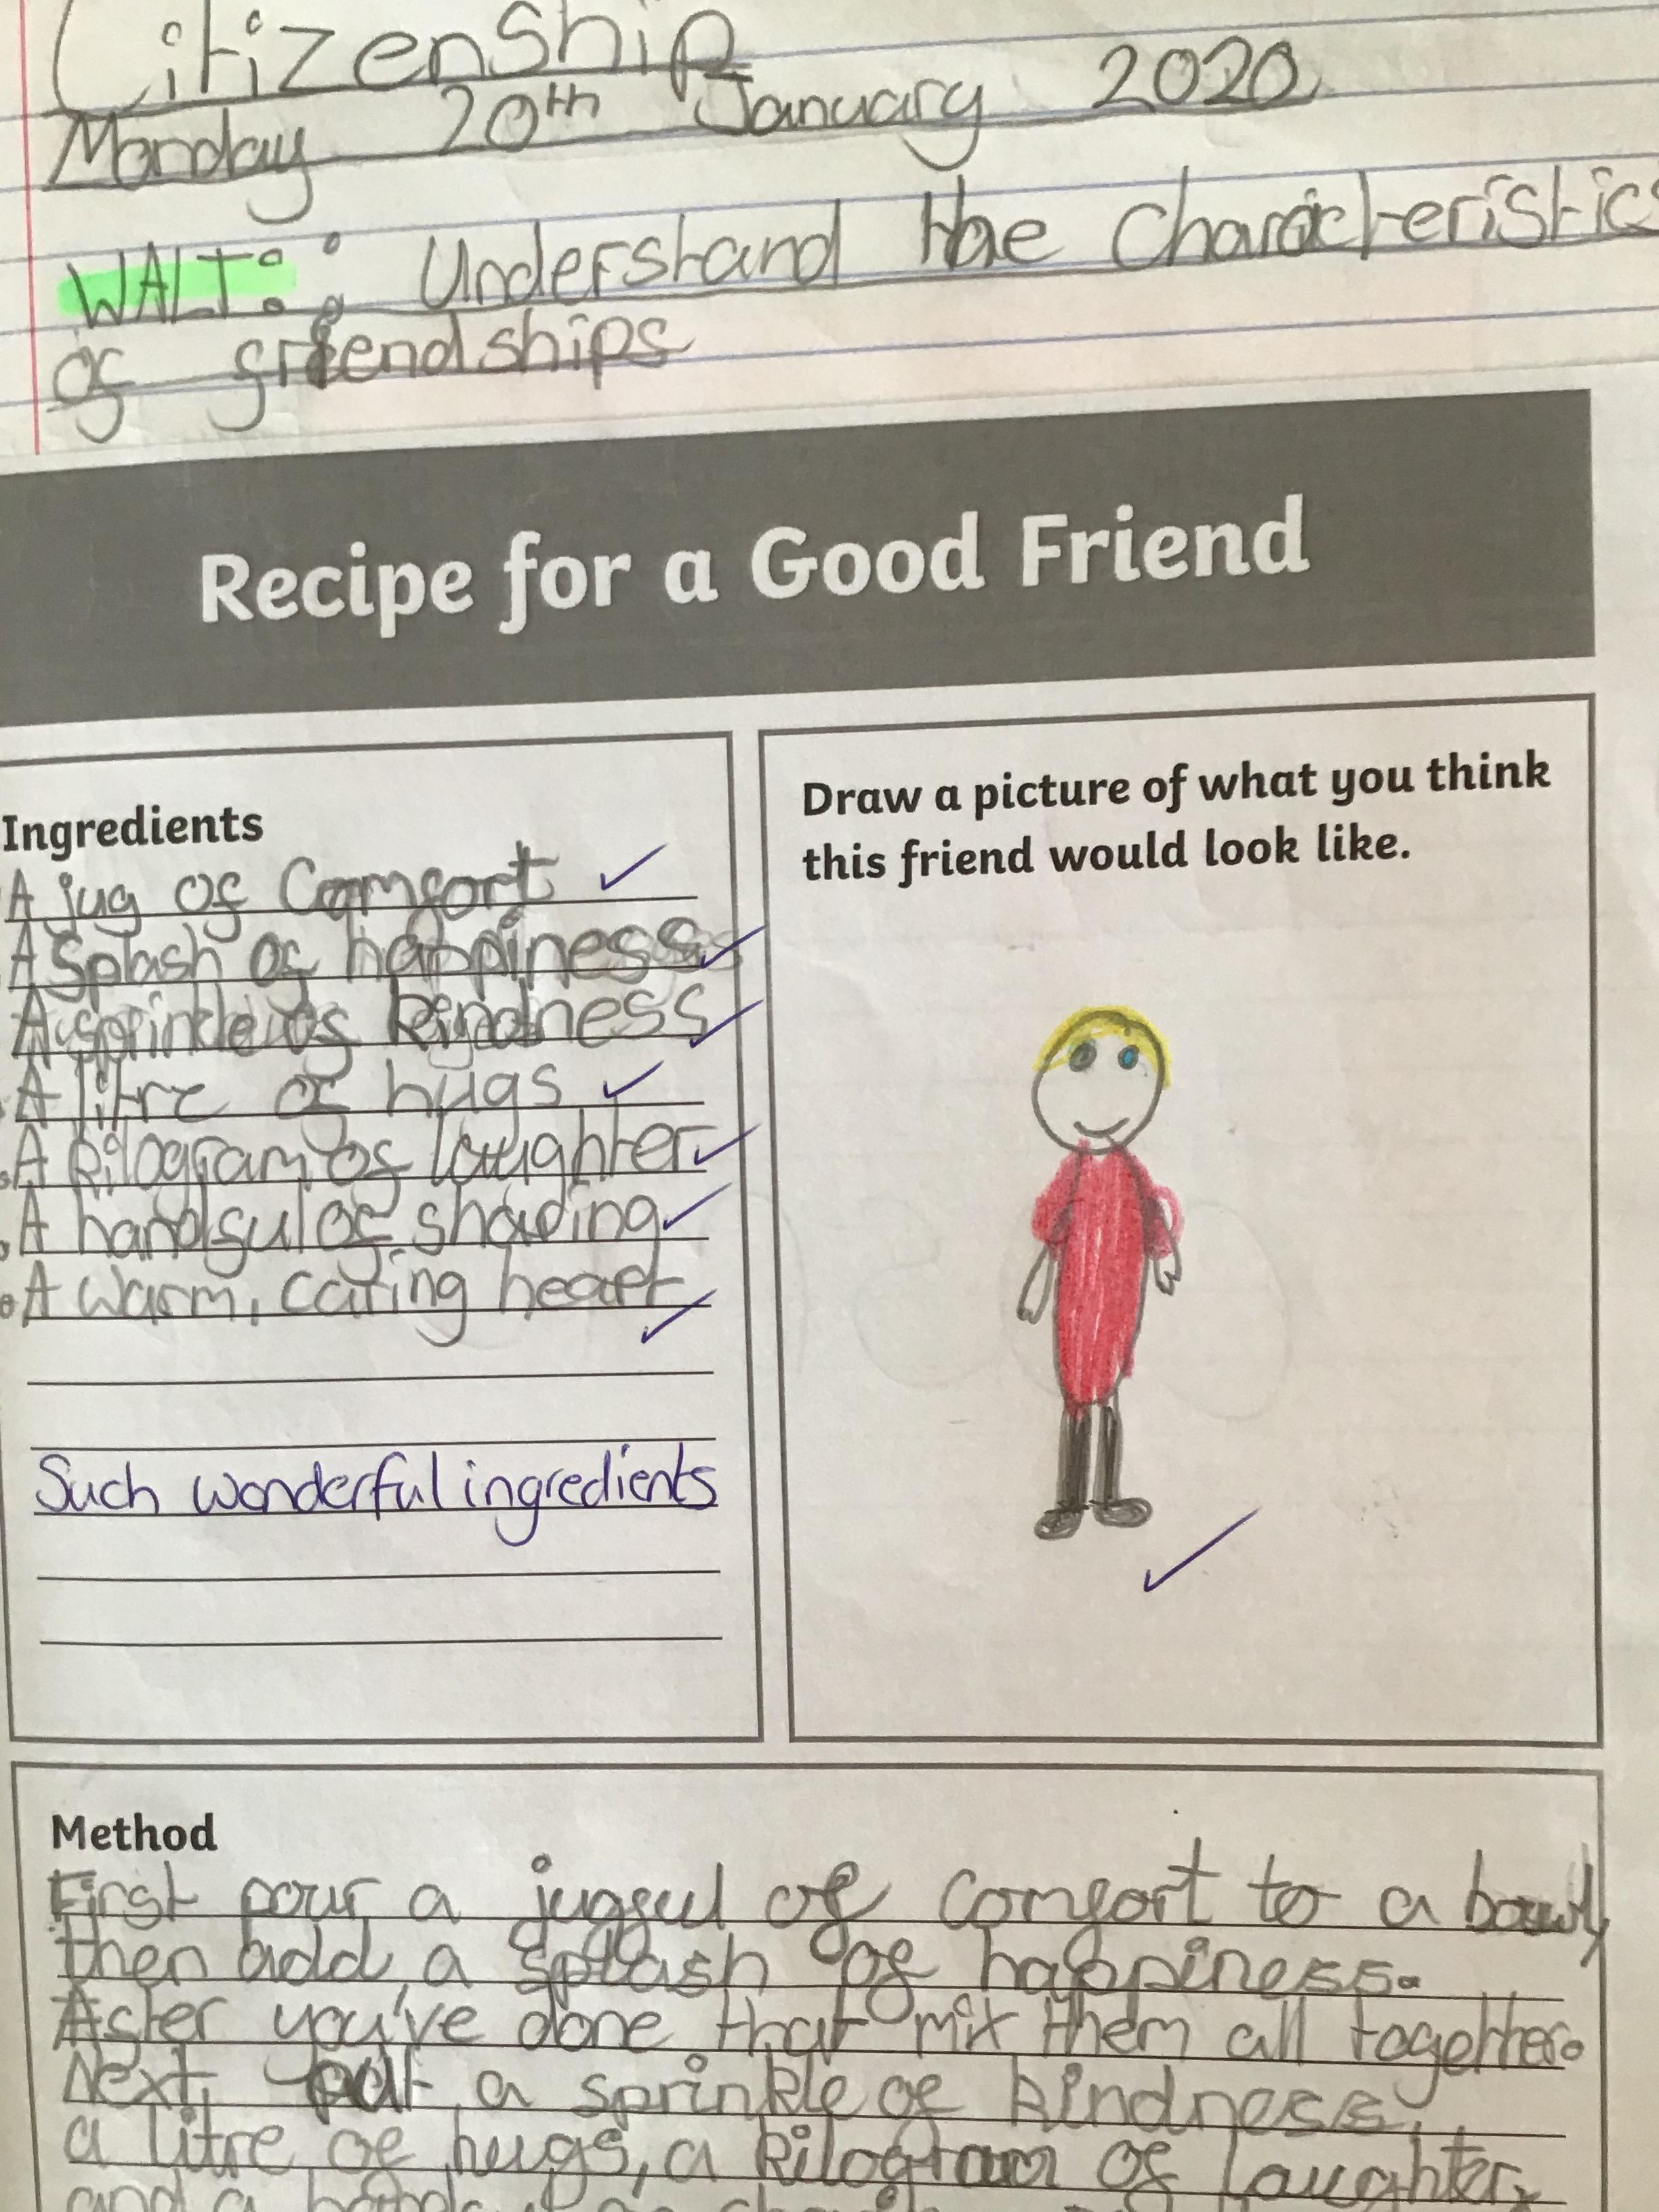 Citizenship
Monday 20th January 2020
WALT: : Understand the Characteristics
of friendships
Recipe for a Good Friend
Ingredients
A jug of Comfort
A Splash of happiness
A sprinkle of kindness
A litre of hugs
A kilogram of laughter
A handful of shading
A warm, caring heart
Such wonderful ingredients
Draw a picture of what you think
this friend would look like.
Method
First pour a jugful of comfort to a bowl,
then add, a splash of happiness.
After you've done that mix them all together.
Next, put a sprinkle of kindness,
a litre of hugs, a kilogram of laughter,
and a